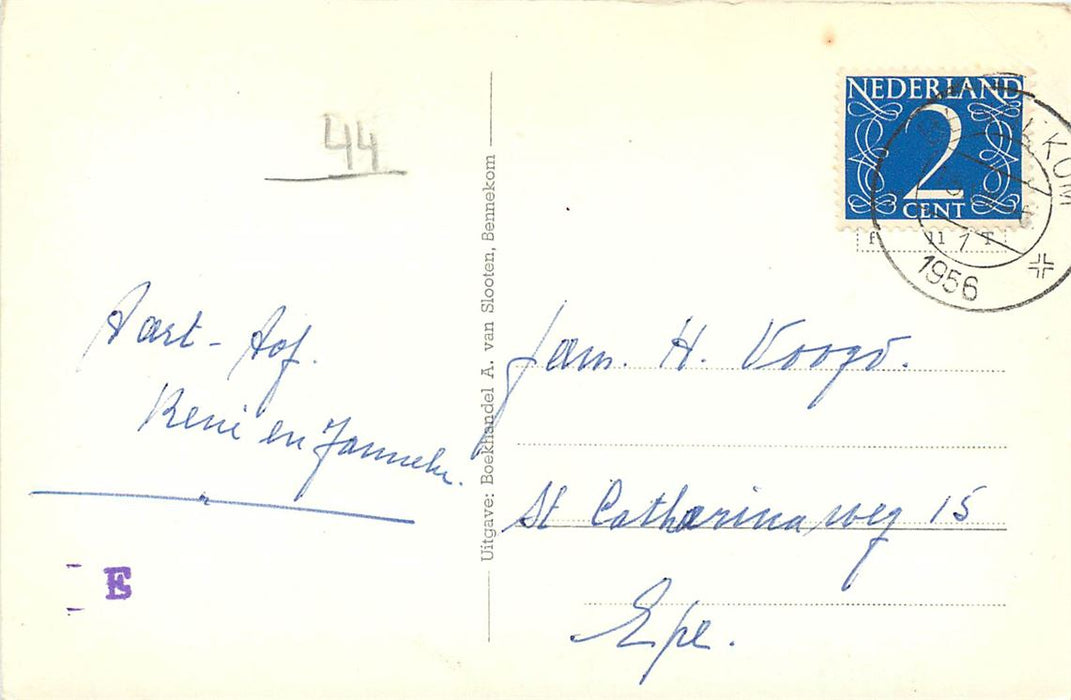 44
Aart - Hof.
René en Janneke.
E
Uitgave: Boekhandel A. van Slooten, Bennekom
NEDERLAND
2
CENT
1956
Fam. H. Voogd.
St Catharinaweg 15
Epe.